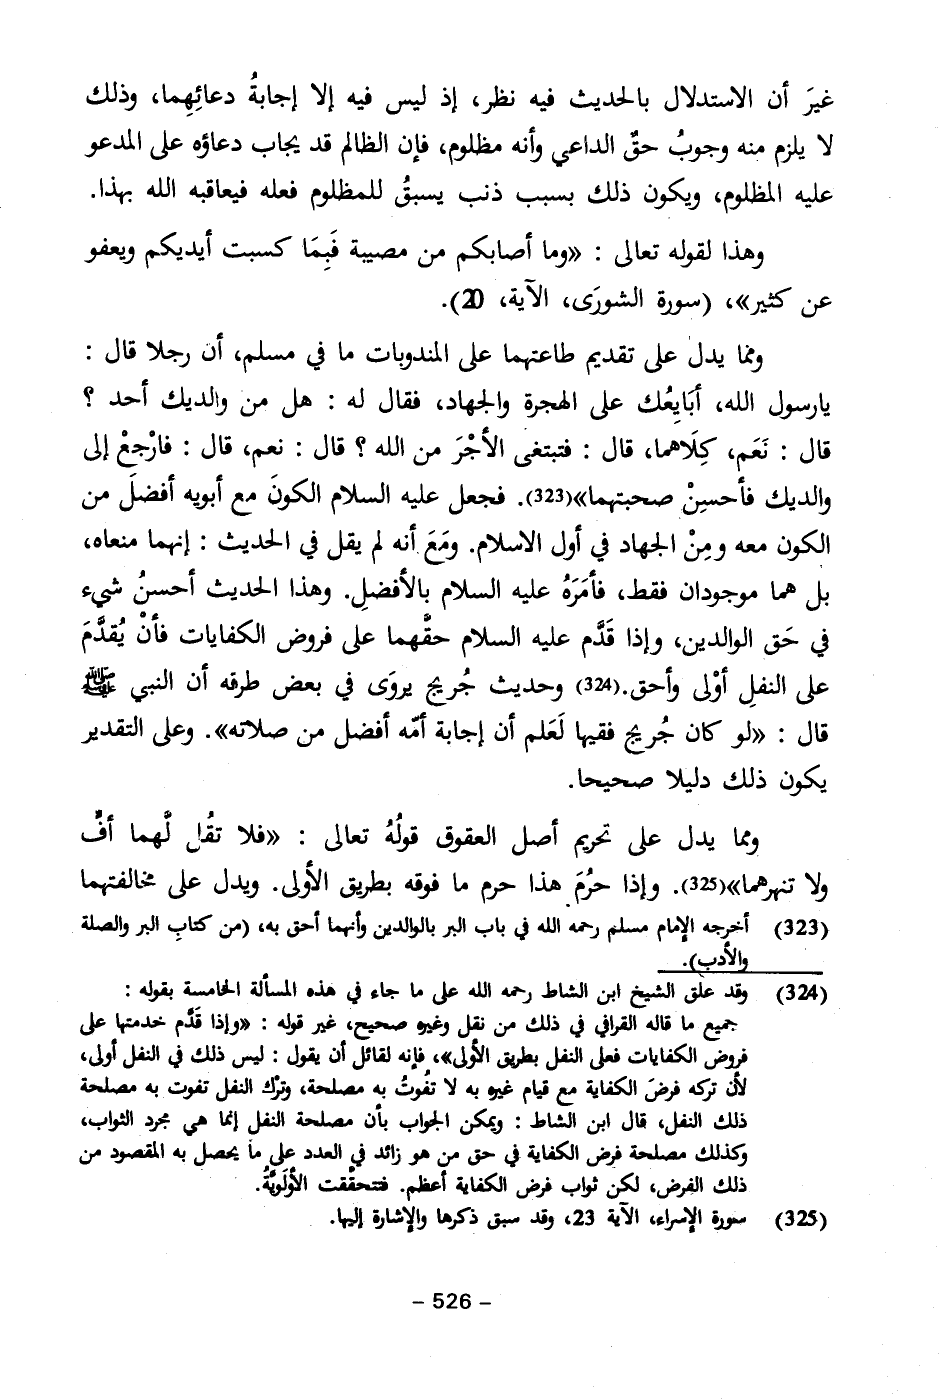 غيرَ أن الاستدلال بالحديث فيه نظر، إذ ليس فيه إلا إجابةُ دعائِهِما، وذلك
لا يلزم منه وجوبُ حقِّ الداعي وأنه مظلوم، فإن الظالم قد يجاب دعاؤه على المدعو
عليه المظلوم، ويكون ذلك بسبب ذنب يسبقُ للمظلوم فعله فيعاقبه الله بهذا.
وهذا لقوله تعالى : «وما أصابكم من مصيبة فَبِمَا كسبت أيديكم ويعفو
عن كثير»، (سورة الشورَى، الآية، 20).
ومما يدل على تقديم طاعتهما على المندوبات ما في مسلم، أن رجلا قال :
يارسول الله، أبَايِعُك على الهجرة والجهاد، فقال له : هل من والديك أحد ؟
قال : نَعَم، كِلَاهما، قال : فتبتغى الأجْرَ من الله ؟ قال : نعم، قال : فارْجِعْ إلى
والديك فأحسِنْ صحبتهما»(323). فجعل عليه السلام الكونَ مع أبويه أفضلَ من
الكون معه ومِنْ الجهاد في أول الاسلام. ومَعَ أنه لم يقل في الحديث : إنهما منعاه،
بل هما موجودان فقط، فأمَرَهُ عليه السلام بالأفضلِ. وهذا الحديث أحسنُ شيء
في حَق الوالدين، وإذا قَدَّم عليه السلام حقَّهما على فروض الكفايات فأنْ يُقدَّمَ
على النفلِ أوْلى وأحق.(324) وحديث جُريج يروَى في بعض طرقه أن النبي ﷺ
قال : «لو كان جُريج فقيها لَعَلم أن إجابة أمّه أفضل من صلاته». وعلى التقدير
يكون ذلك دليلا صحيحا.
ومما يدل على تحريم أصل العقوق قولُهُ تعالى : «فلا تقُل لَّهما أفٍّ
ولا تنهرهما»(325). وإذا حرُمَ هذا حرم ما فوقه بطريق الأولى. ويدل على مخالفتهما
(323) أخرجه الإمام مسلم رحمه الله في باب البر بالوالدين وأنهما أحق به، (من كتابِ البر والصلة
والأدب).
(324) وقد علق الشيخ ابن الشاط رحمه الله على ما جاء في هذه المسألة الخامسة بقوله :
جميع ما قاله القرافي في ذلك من نقل وغيره صحيح، غير قوله : «وإذا قَدَّم خدمتها على
فروض الكفايات فعلى النفل بطريق الأولى»، فإنه لقائل أن يقول : ليس ذلك في النفل أولى،
لأن تركه فرضَ الكفاية مع قيام غيره به لا تفُوتُ به مصلحة، وترْك النفل تفوت به مصلحة
ذلك النفل، قال ابن الشاط : ويمكن الجواب بأن مصلحة النفل إنما هي مجرد الثواب،
وكذلك مصلحة فرض الكفاية في حق من هو زائد في العدد على ما يحصل به المقصود من
ذلك الفرض، لكن ثواب فرض الكفاية أعظم. فتحقَّقت الأولَوِيَّةُ.
(325) سورة الإسراء، الآية 23، وقد سبق ذكرها والإشارة إليها.
- 526 -